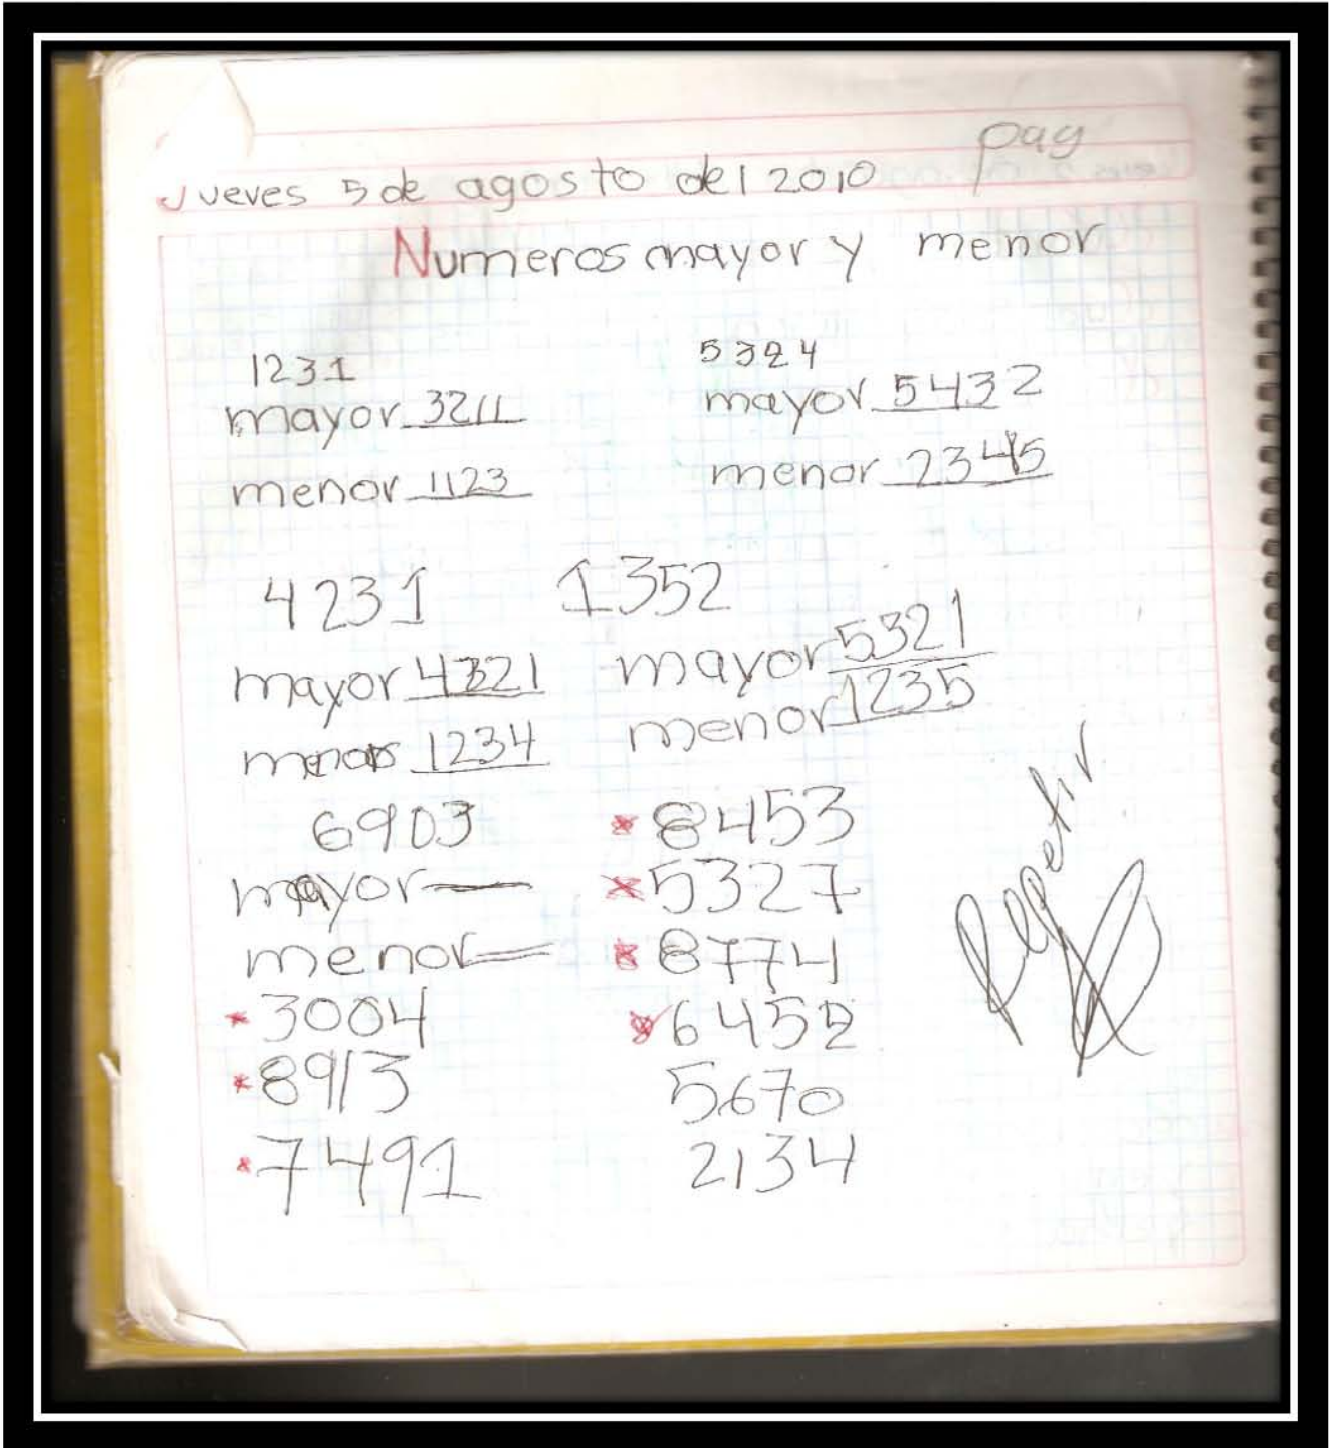 pag
Jueves 5 de agosto del 2010
Numeros mayor y menor
1231
mayor 3211
menor 1123
5324
mayor 5432
menor 2345
4231
mayor 4321
menor 1234
1352
mayor 5321
menor 1235
6903
mayor
menor
3004
8913
7491
8453
5327
8774
6452
5670
2134